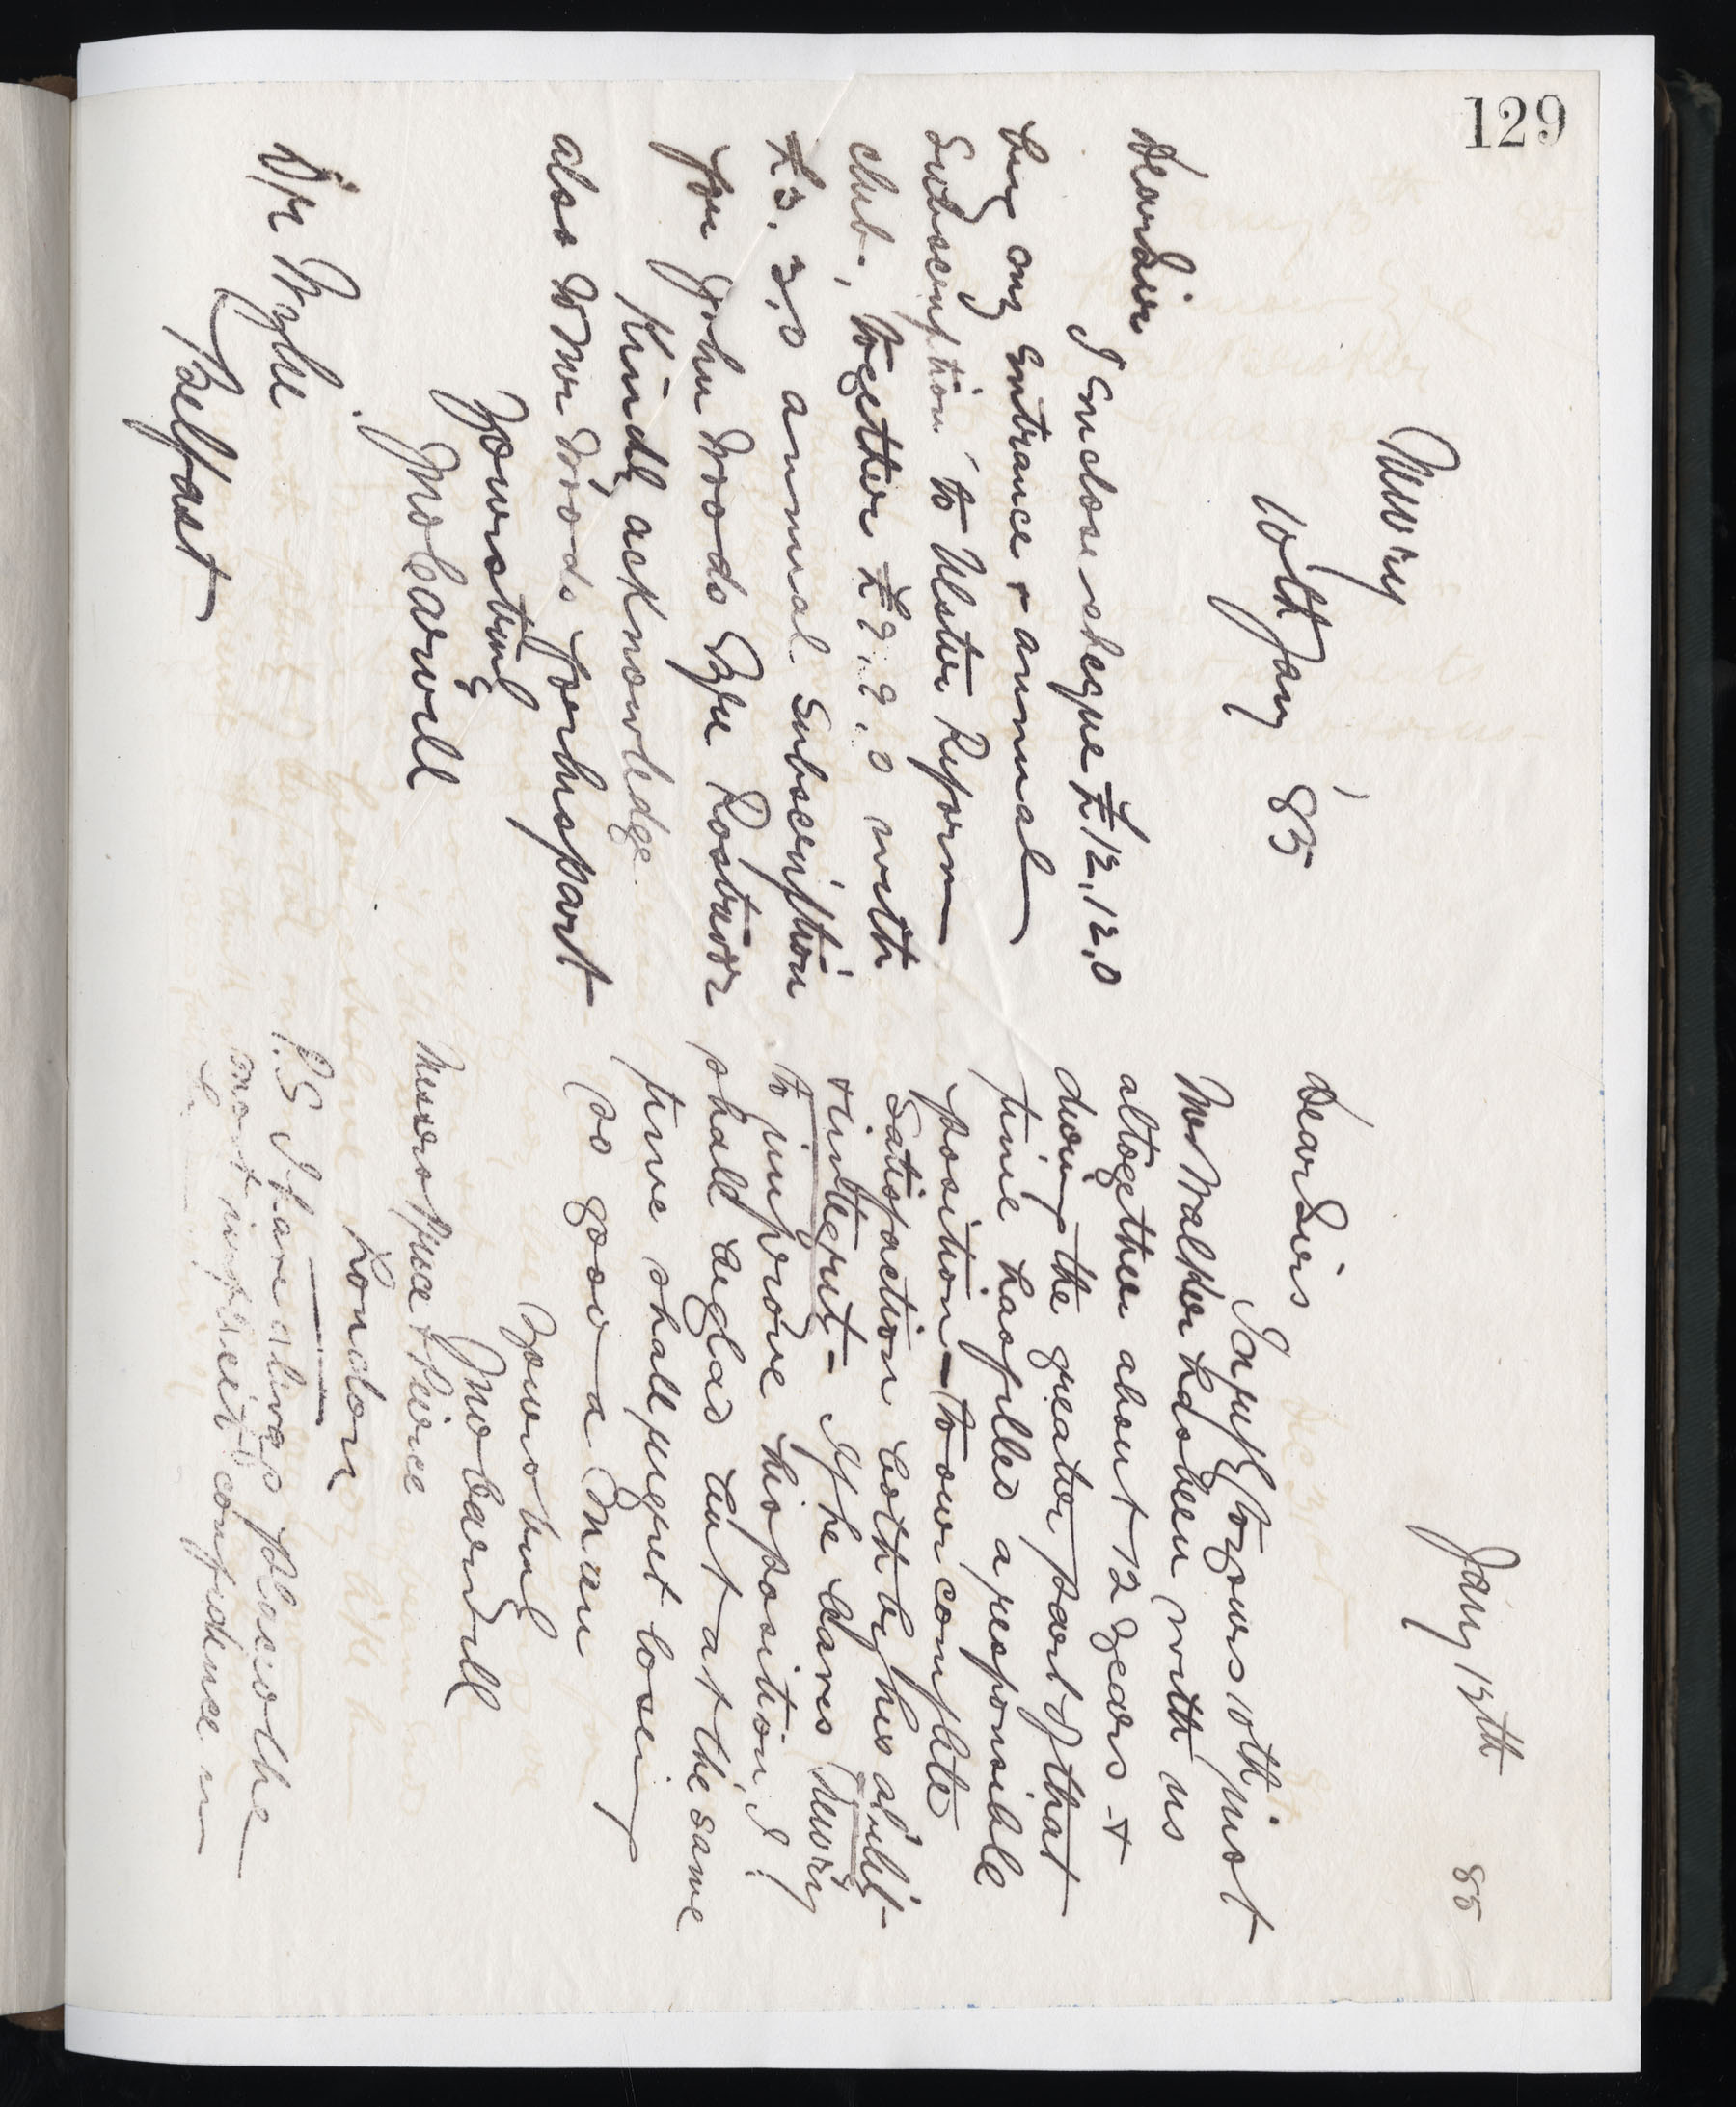 129
Newry
10th Jany 85
Dear Sir
I Enclose cheque £12,12,0
being my Entrance & annual
Subscription to Ulster Reform
Club, together £9,9,0 with
£3,3,0 annual Subscription
for John Woods Esqre Rostrevor
Kindly acknowledge
also to Mr Woods for his part
Yours truly
Jno Carvill
W Wylie
Belfast
Jany 13th 85
Dear Sirs
In reply to yours 10th inst
Mr Walker has been with us
altogether about 12 years &
during the greater part of that
time has filled a responsible
position to our complete
Satisfaction both by his ability
& integrity. If he leaves Newry
to improve his position, I
shall be glad but at the same
time shall regret losing
so good a man
Yours truly
Jno Carvill
Messrs Price & Pierce
London
P.S I have always placed the
most implicit confidence in